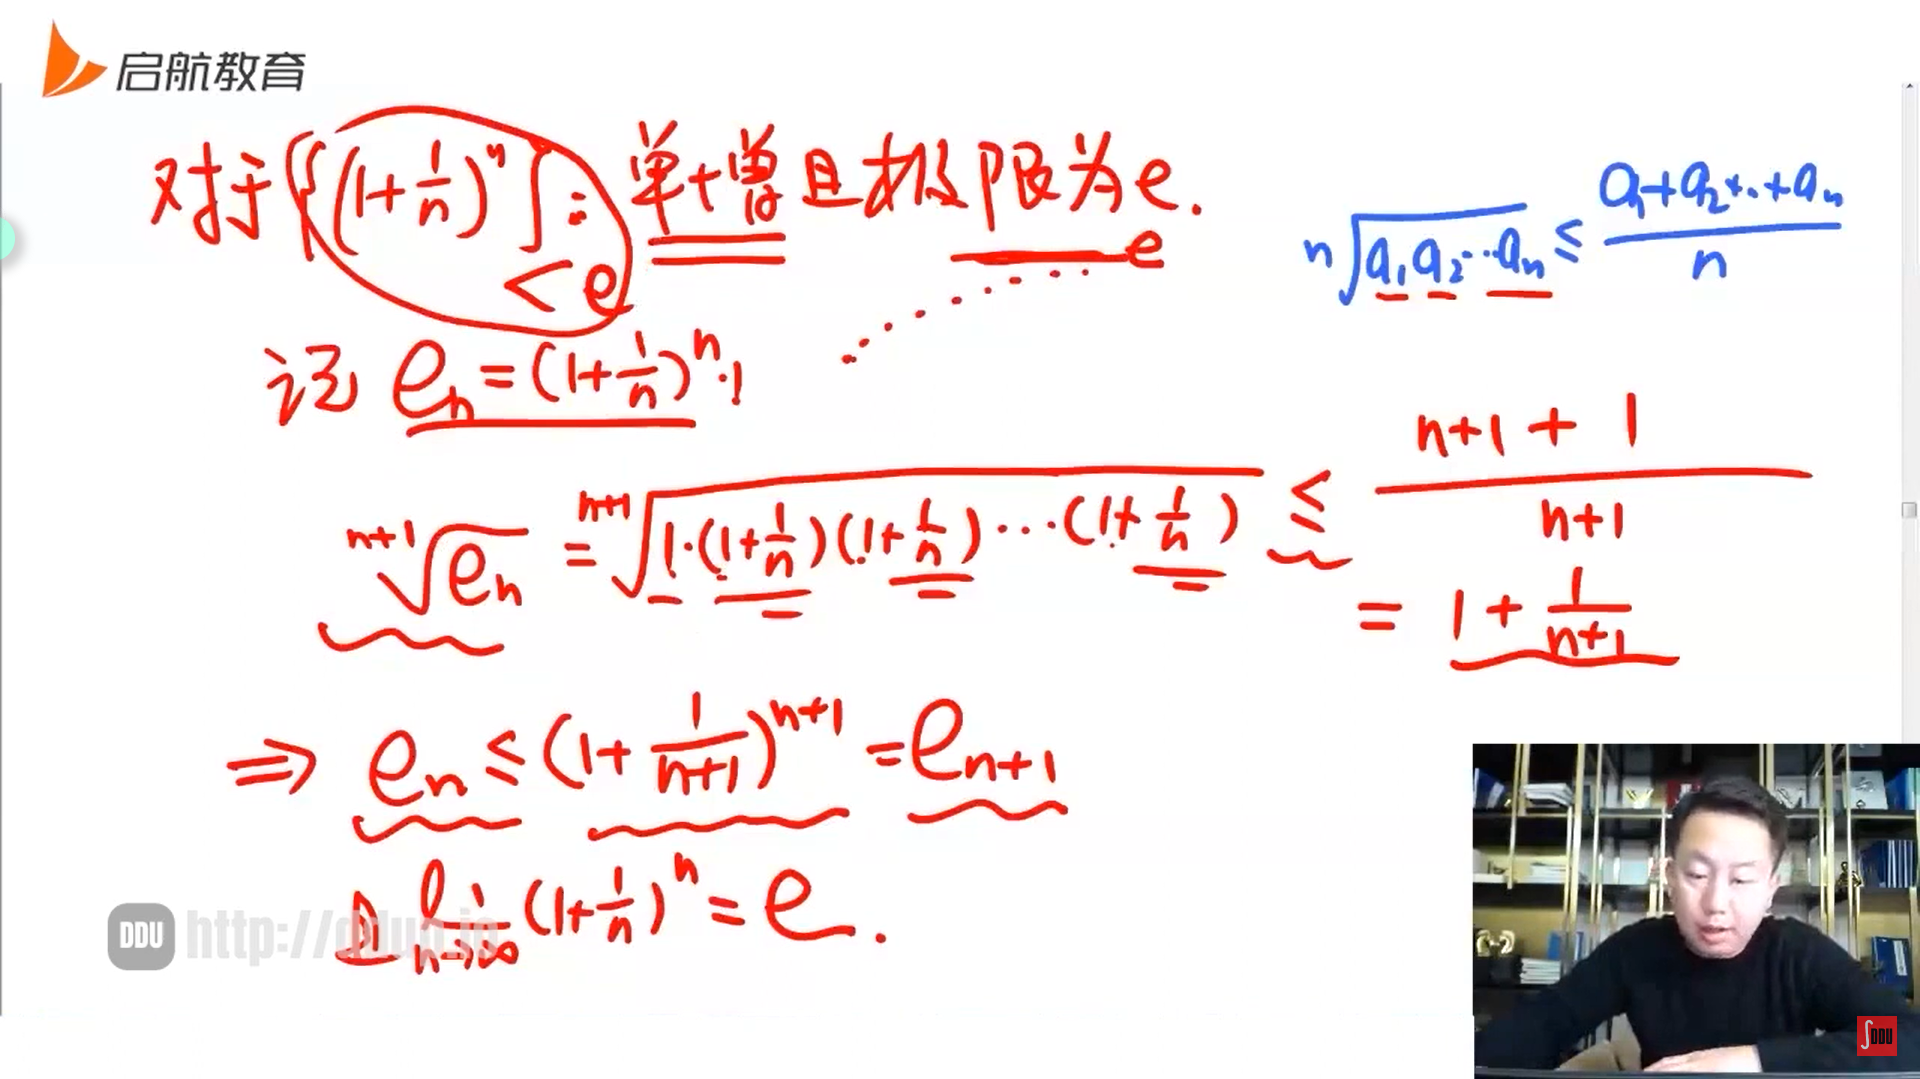 启航教育
对于{(1+1/n)^n}: 单增且极限为e.
<e
e
ⁿ√(a₁a₂…aₙ) ≤ (a₁+a₂+…+aₙ)/n
记 eₙ=(1+1/n)^n·1
ⁿ⁺¹√eₙ = ⁿ⁺¹√(1·(1+1/n)(1+1/n)…(1+1/n)) ≤ (n+1+1)/(n+1)
= 1+1/(n+1)
⇒ eₙ ≤ (1+1/(n+1))^(n+1) = eₙ₊₁
且 lim n→∞ (1+1/n)^n = e.
DDU http://ddup.io
DDU